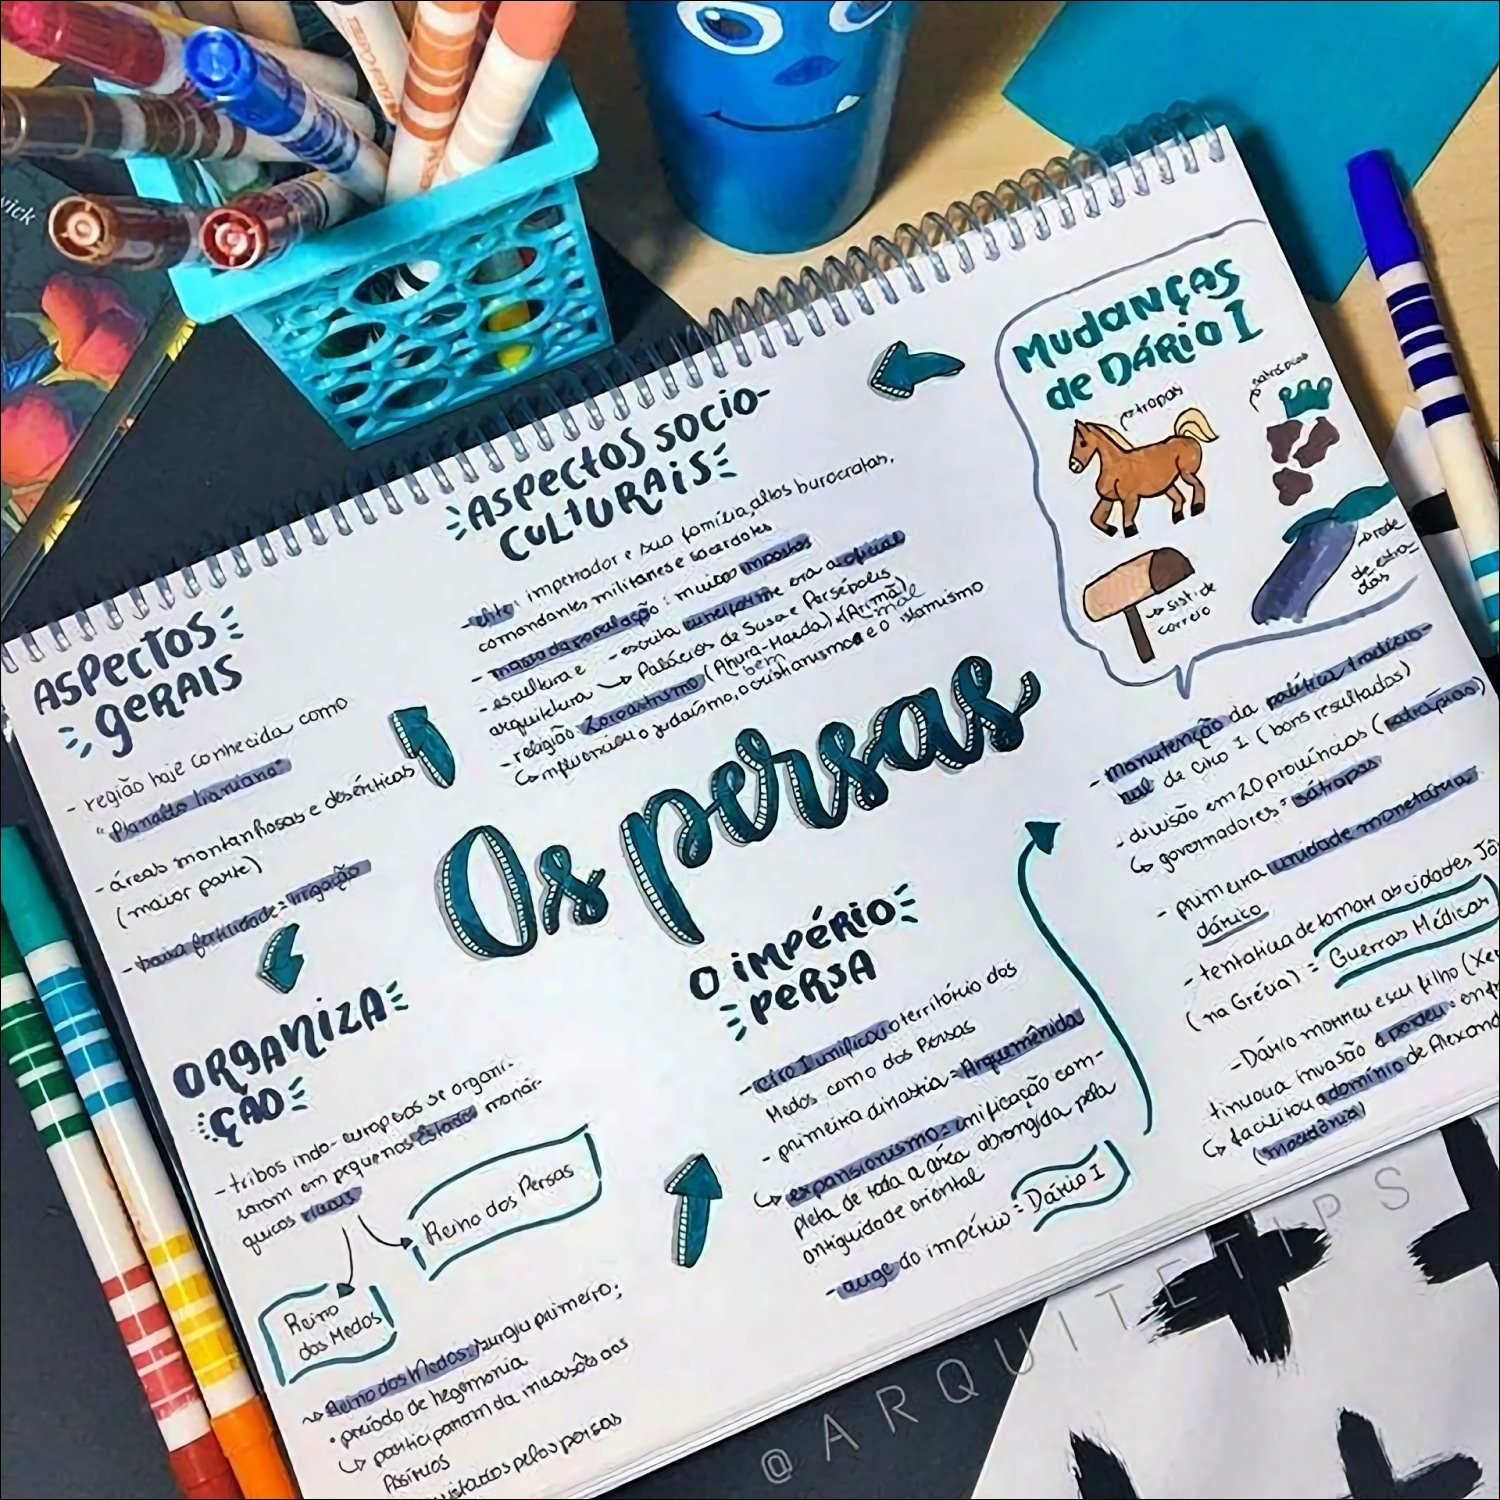 Os persas
ASPECTOS
GERAIS
- região hoje conhecida como
"Planalto Iraniano"
- áreas montanhosas e desérticas
(maior parte)
- baixa fertilidade = irrigação
ORGANIZA
ÇÃO
- tribos indo-europeias se organi-
zaram em pequenos Estados monár-
quicos rivais
Reino dos Persas
Reino
dos Medos
Reino dos Medos: surgiu primeiro;
• período de hegemonia
participaram da invasão aos
Assírios
pelos persas
ASPECTOS SOCIO-
CULTURAIS
- elite: imperador e sua família, altos burocratas,
comandantes militares e sacerdotes
- massa da população: muitos impostos
- escultura e - escrita cuneiforme era a oficial
arquitetura Palácios de Susa e Persépolis
- religião Zoroastrismo (Ahura-Mazda) x (Arimã)
bem mal
influenciou o judaísmo, o cristianismo e o islamismo
O IMPÉRIO
PERSA
- Ciro I unificou o território dos
Medos como dos Persas
- primeira dinastia = Arquemênida
expansionismo = unificação com-
pleta de toda a área abrangida pela
antiguidade oriental
- auge do império = Dário I
MUDANÇAS
de DÁRIO I
tropas
satrápias
sist. de
correio
rede
de estra-
das
- manutenção da política tradicio-
nal de Ciro I (bons resultados)
- divisão em 20 províncias (satrápias)
governadores = sátrapas
- primeira unidade monetária
dárico
- tentativa de tomar as cidades Jô
(na Grécia) = Guerras Médicas
- Dário morreu e seu filho (Xer
tinuou a invasão e perdeu
facilitou o domínio de Alexand
(macedônia)
@ARQUITETIPS
wick